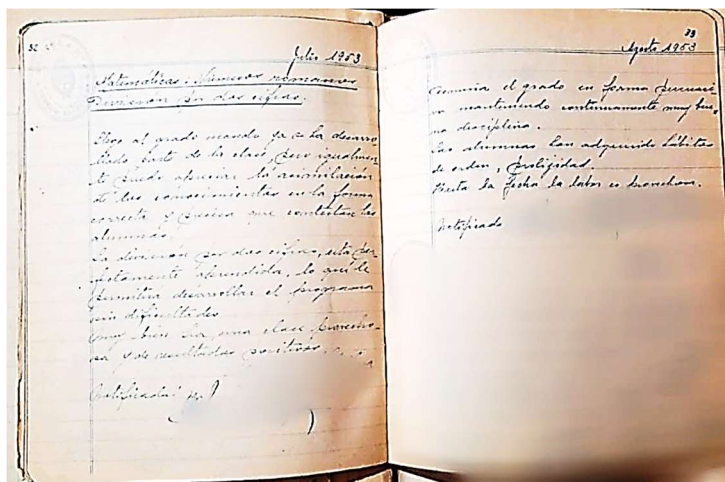 32
Julio 1953
Matemáticas: Números romanos
División por dos cifras.
Llego al grado cuando ya se ha desarro-
llado parte de la clase, pero igualmen-
te puedo apreciar la asimilación
de los conocimientos en la forma
correcta y precisa que contestan las
alumnas.
La división por dos cifras, está per-
fectamente aprendida, lo que le
permitirá desarrollar el programa
sin dificultades
Muy bien Sra, una clase provecho-
sa y de resultados positivos
Notificada:
33
Agosto 1953
Domina el grado en forma persuasi-
va manteniendo continuamente muy bue-
na disciplina.
Las alumnas han adquirido hábitos
de orden, prolijidad.
Hasta la fecha la labor es provechosa.
Notificada